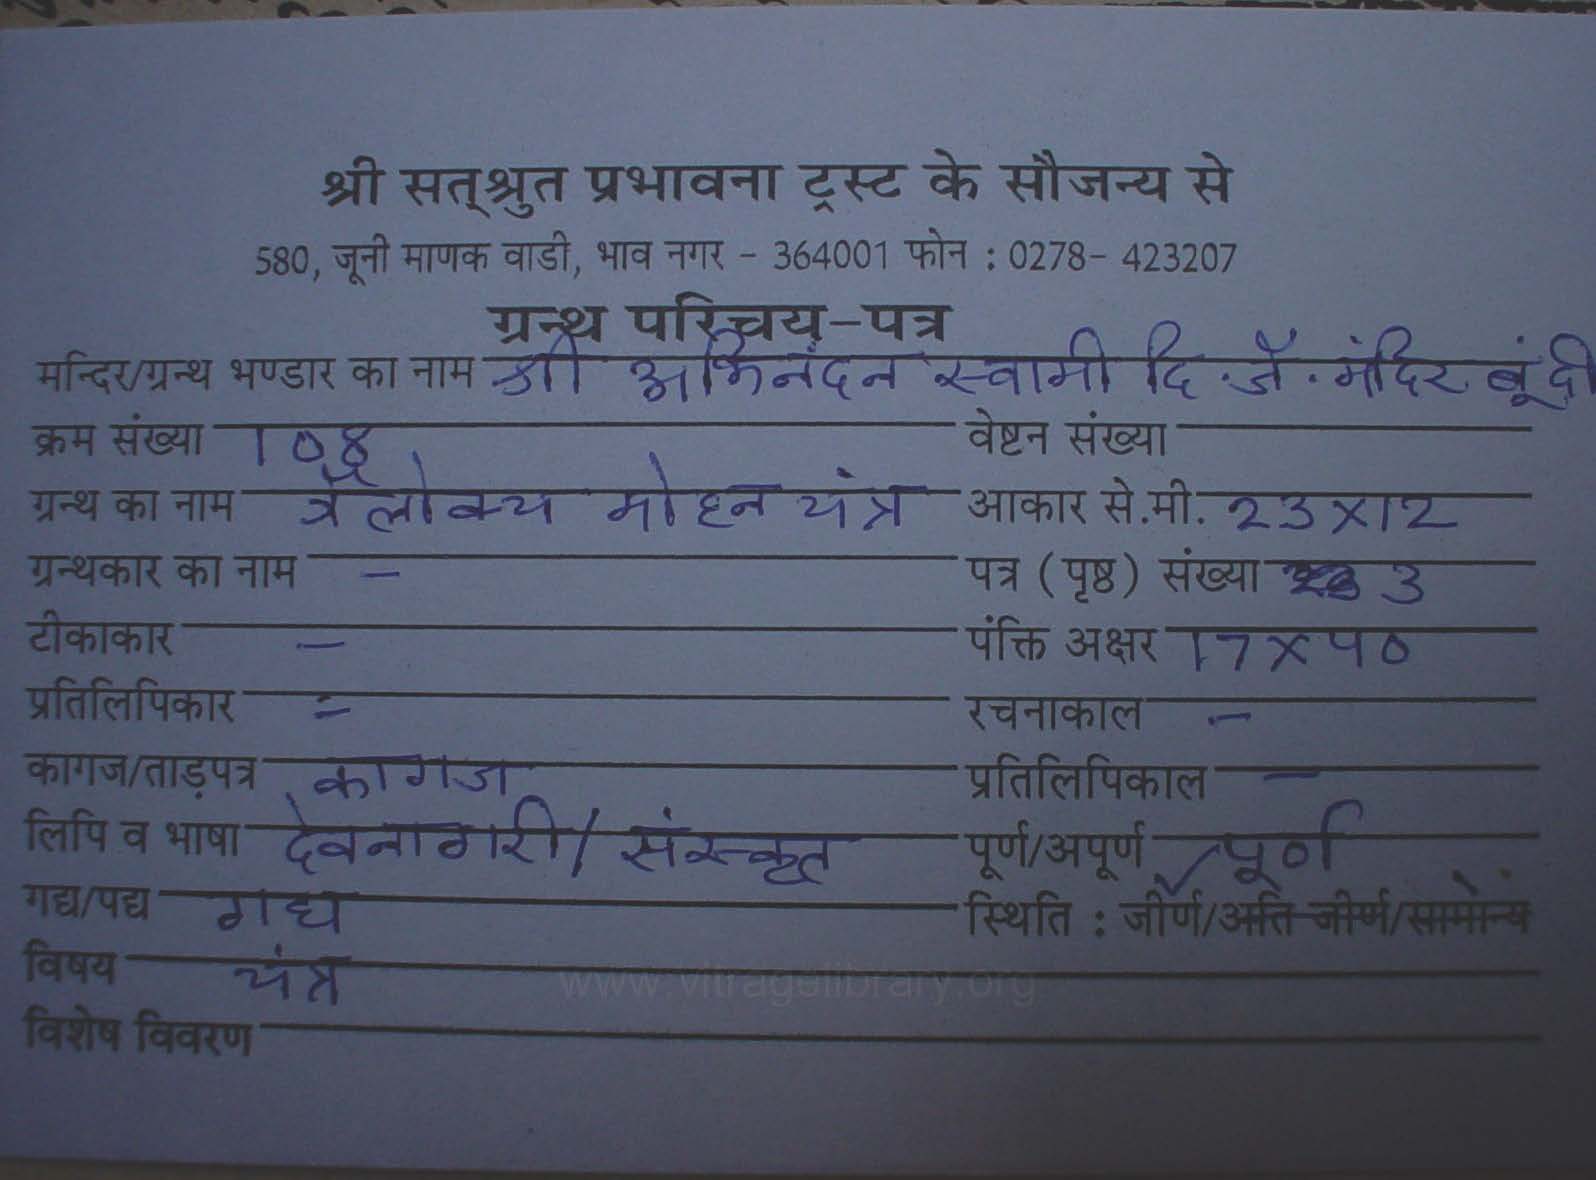 श्री सत्श्रुत प्रभावना ट्रस्ट के सौजन्य से
580, जूनी माणक वाडी, भाव नगर - 364001 फोन : 0278- 423207
ग्रन्थ परिचय-पत्र
मन्दिर/ग्रन्थ भण्डार का नाम श्री अभिनंदन स्वामी दि. जैं. मंदिर बूंदी
क्रम संख्या 108 वेष्टन संख्या
ग्रन्थ का नाम त्रैलोक्य मोहन यंत्र आकार से.मी. 23x12
ग्रन्थकार का नाम - पत्र (पृष्ठ) संख्या 3
टीकाकार - पंक्ति अक्षर 17x40
प्रतिलिपिकार - रचनाकाल -
कागज/ताड़पत्र कागज प्रतिलिपिकाल -
लिपि व भाषा देवनागरी/संस्कृत पूर्ण/अपूर्ण पूर्ण
गद्य/पद्य गद्य स्थिति : जीर्ण/अति जीर्ण/सामान्य
विषय यंत्र
www.vitragelibrary.org
विशेष विवरण